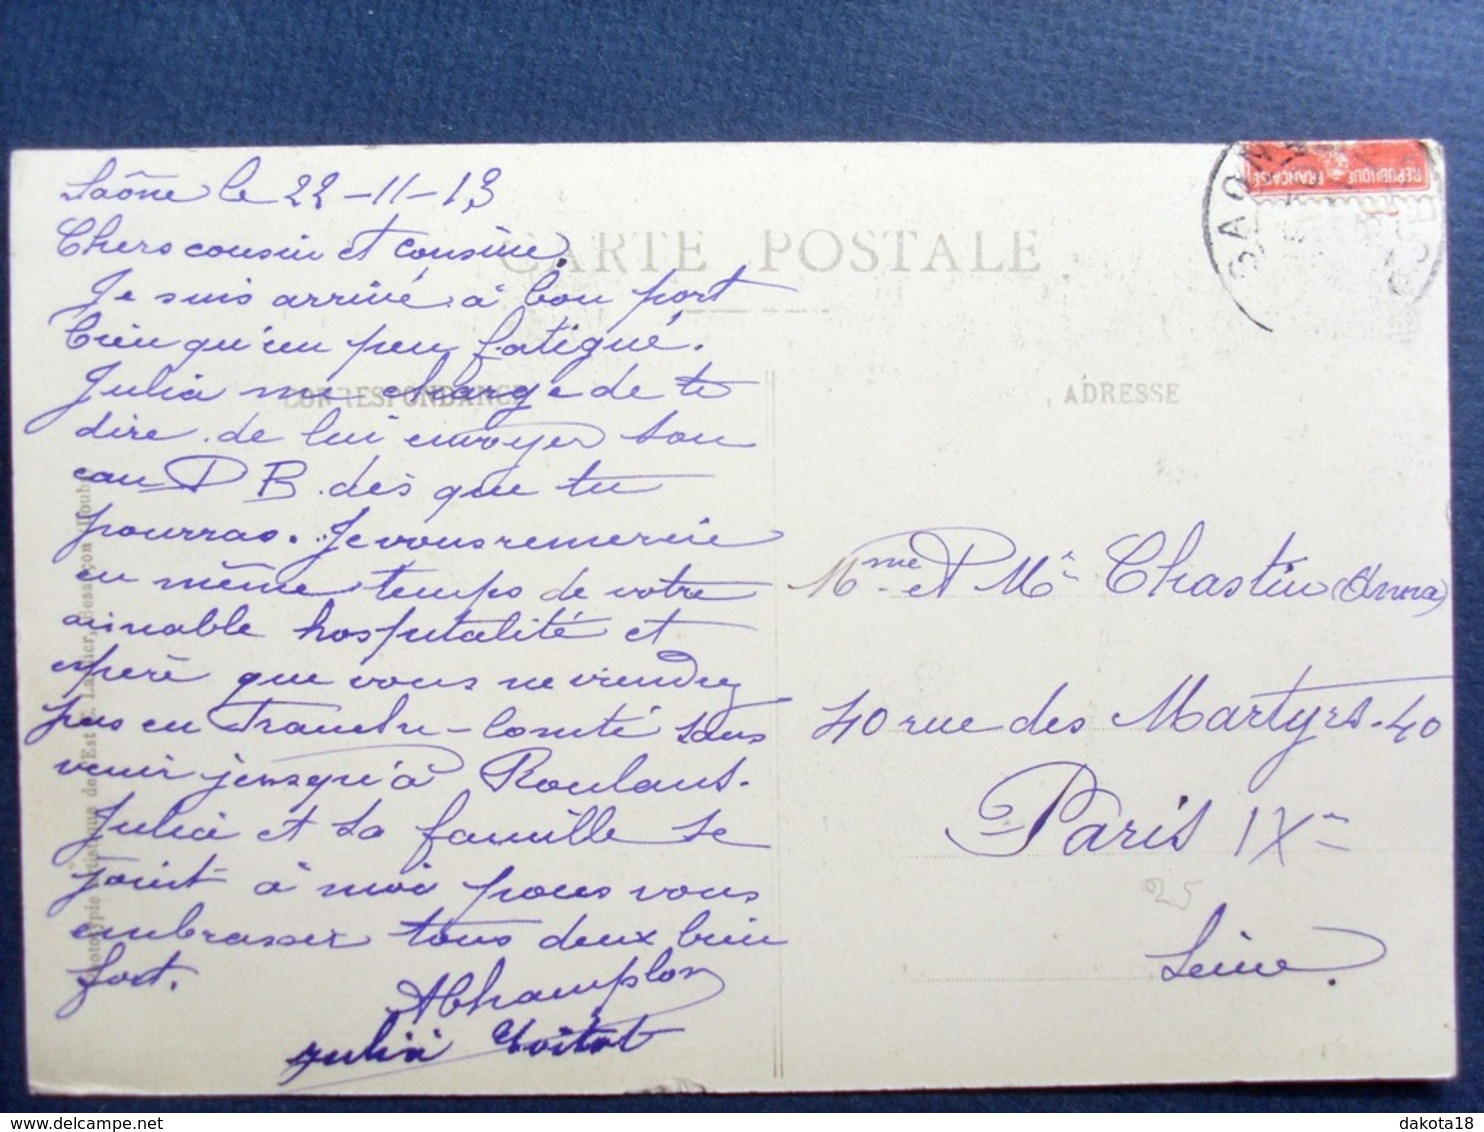 Saône le 22-11-13
Chers cousin et cousine.
CARTE POSTALE
Je suis arrivé à bon port
bien qu'un peu fatigué.
Julia me charge de te
CORRESPONDANCE
ADRESSE
dire de lui envoyer son
can D B. dès que tu
pourras. Je vous remercie
en même temps de votre
aimable hospitalité et
espère que vous ne viendrez
pas en Franche-Comté sans
venir jusqu'à Roulans.
Julia et sa famille se
joint à moi pour vous
embrasser tous deux bien
fort.
AChamplon
Julia
Mme et Mr Chastin (Anna)
40 rue des Martyrs-40
Paris IXe
25
Seine.
REPUBLIQUE FRANÇAISE
SAON
dakota18